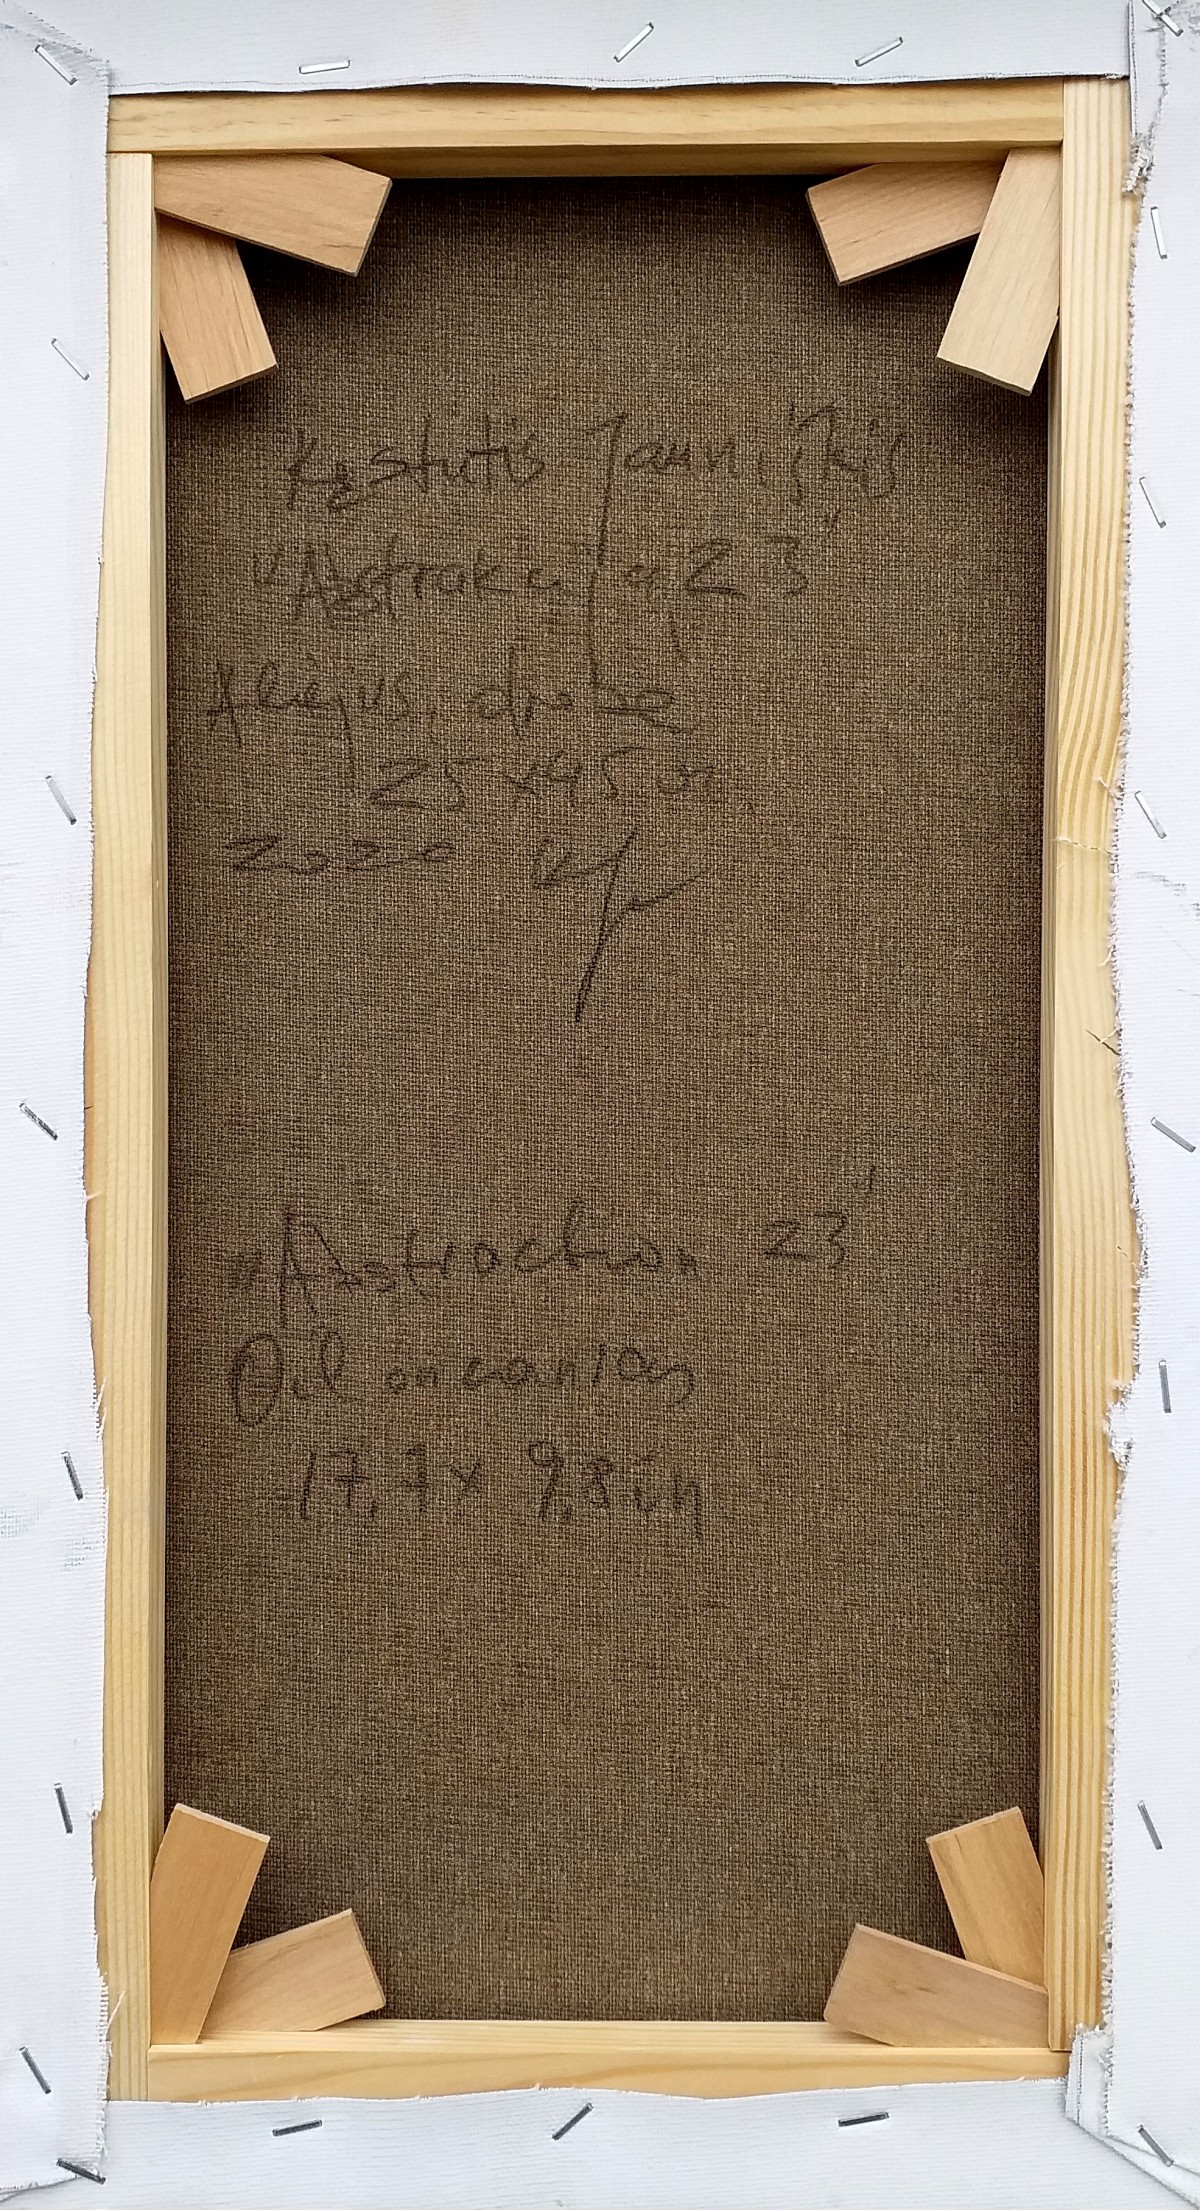 Kęstutis Jauniškis
"Abstrakcija 23"
Aliejus, drobė
25 x 45 cm
2020
"Abstraction 23"
Oil on canvas
17,7 x 9,8 in